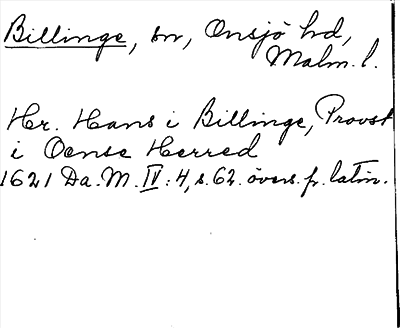 Billinge, sn, Onsjö hd,
Malm. l.
Hr. Hans i Billinge, Provst
i Oense Herred
1621 Da. M. IV: 4, s. 62. övers. fr. latin.